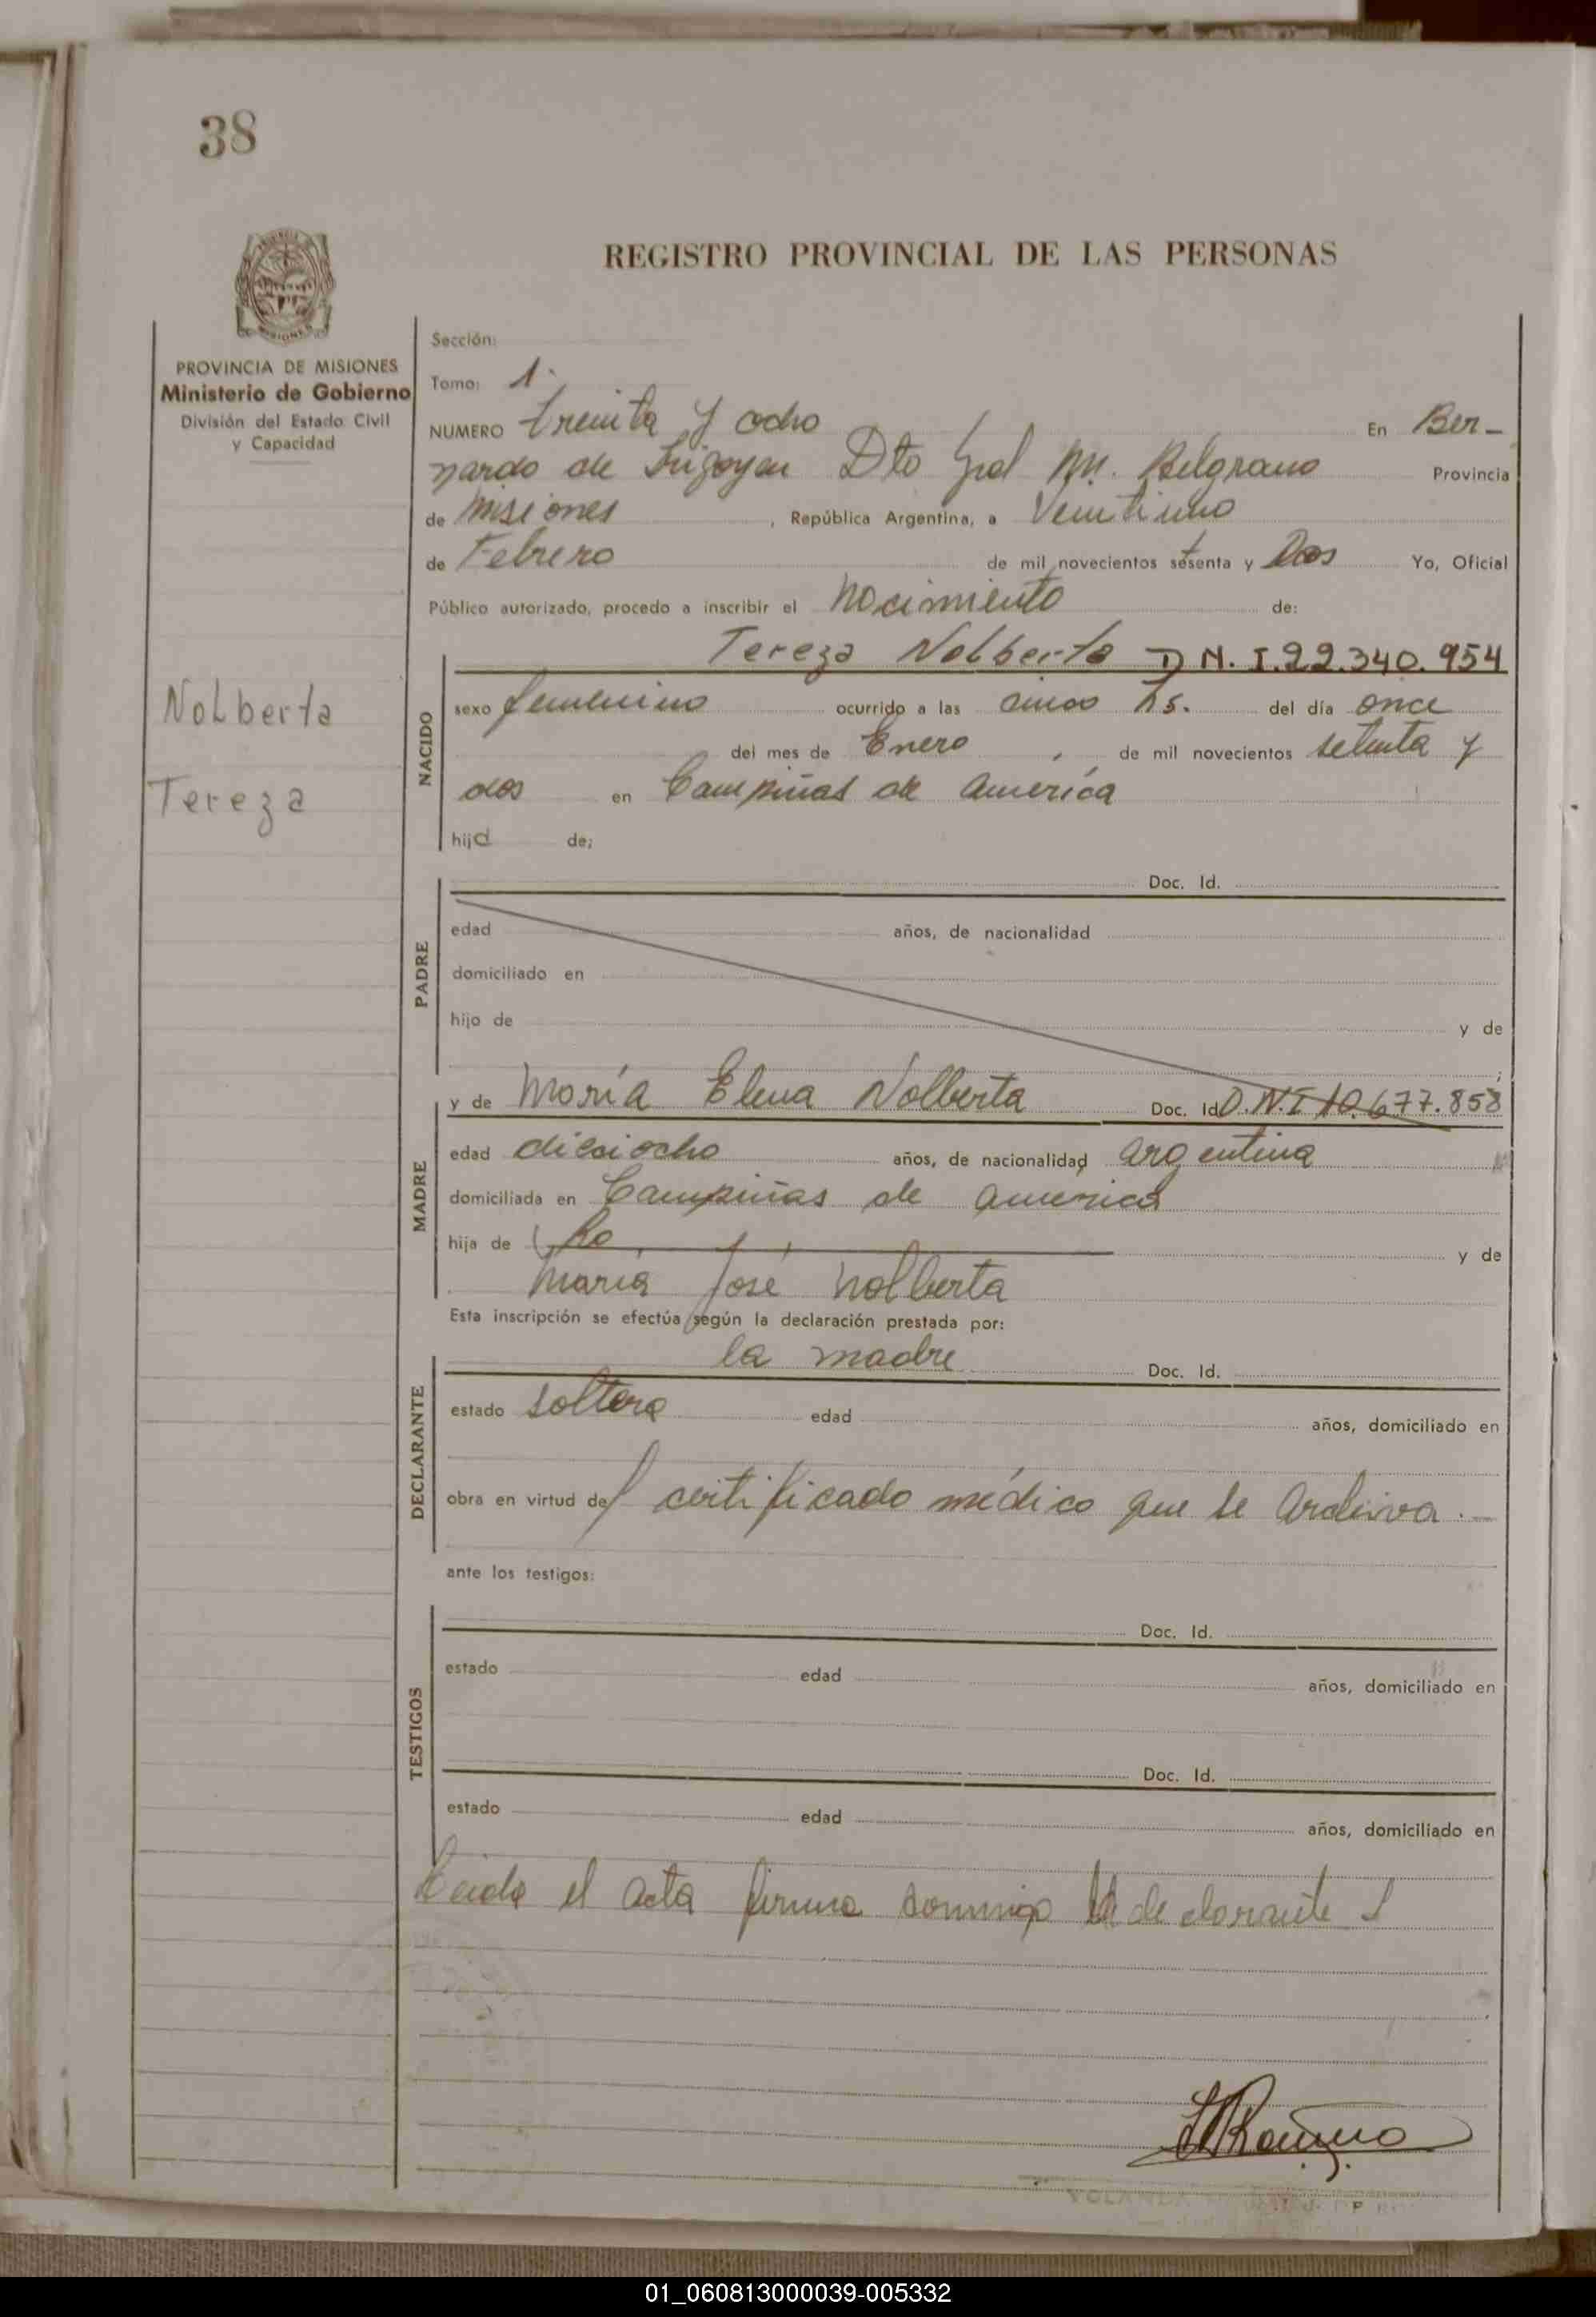 38
REGISTRO PROVINCIAL DE LAS PERSONAS
PROVINCIA DE MISIONES
Ministerio de Gobierno
División del Estado Civil
y Capacidad
Nolberta
Tereza
Sección:
Tomo: 1.
NUMERO treinta y ocho En Ber-
nardo de Irigoyen Dto Gral M. Belgrano Provincia
de Misiones, República Argentina, a Veintiuno
de Febrero de mil novecientos setenta y Dos Yo, Oficial
Público autorizado, procedo a inscribir el nacimiento de:
Tereza Nolberta D N. I. 22.340.954
NACIDO
sexo femenino ocurrido a las cinco hs. del día once
del mes de Enero, de mil novecientos setenta y
dos en Campiñas de America
hija de;
PADRE
Doc. Id.
edad años, de nacionalidad
domiciliado en
hijo de y de
;
MADRE
y de María Elena Nolberta Doc. Id D.N.I 10.677.858
edad dieciocho años, de nacionalidad argentina
domiciliada en Campiñas de America
hija de y de
Maria José Nolberta
Esta inscripción se efectúa según la declaración prestada por:
DECLARANTE
la madre Doc. Id.
estado soltera edad años, domiciliado en
obra en virtud del certificado médico que se archiva.-
ante los testigos:
TESTIGOS
Doc. Id.
estado edad años, domiciliado en
Doc. Id.
estado edad años, domiciliado en
Leida el acta firma conmigo la declarante
YOLANDA
01_060813000039-005332